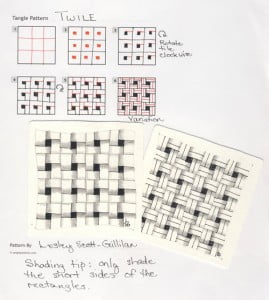 Tangle Pattern TWILE
1
2
3
Rotate
tile
clockwise
4
5
6
Variation
Pattern By Lesley Scott-Gillilan
Shading tip: only shade
the short sides of the
rectangles.